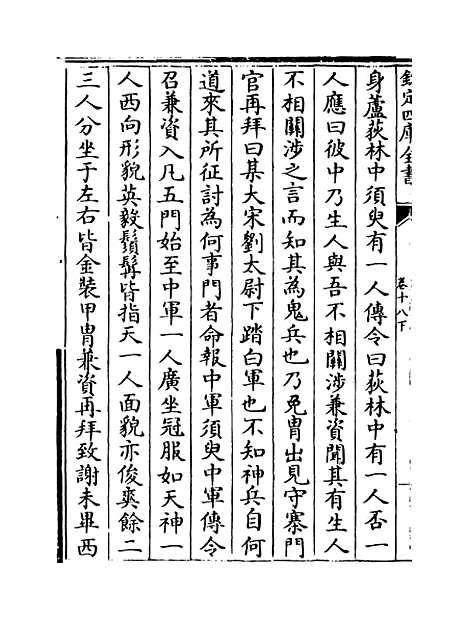 欽定四庫全書
卷十八下
身蘆荻林中須臾有一人傳令曰荻林中有一人否一
人應曰彼中乃生人與吾不相關涉兼資聞其有生人
不相關涉之言而知其為鬼兵也乃免胄出見守寨門
官再拜曰某大宋劉太尉下踏白軍也不知神兵自何
道來其所征討為何事門者命報中軍須臾中軍傳令
召兼資入凡五門始至中軍一人廣坐冠服如天神一
人西向形貌英毅鬚髯皆指天一人面貌亦俊爽餘二
三人分坐于左右皆金裝甲胄兼資再拜致謝未畢西